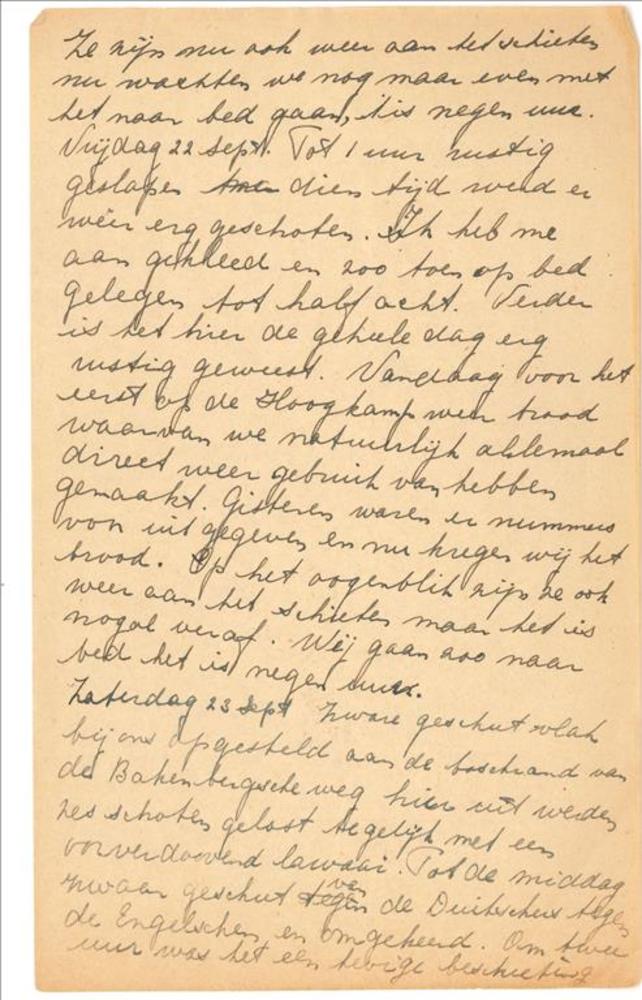 Ze zijn nu ook weer aan het schieten
nu wachten we nog maar even met
het naar bed gaan, 't is negen uur.
Vrijdag 22 Sept. Tot 1 uur rustig
geslapen dien tijd werd er
weer erg geschoten. Ik heb me
aan gekleed en zoo toen op bed
gelegen tot half acht. Verder
is het hier de geheele dag erg
rustig geweest. Vandaag voor het
eerst op de Hoogkamp weer brood
waarvan we natuurlijk allemaal
direct weer gebruik van hebben
gemaakt. Gisteren waren er nummers
voor uit gegeven en nu kregen wij het
brood. Op het oogenblik zijn ze ook
weer aan het schieten maar het is
nogal veraf. Wij gaan zoo naar
bed het is negen uur.
Zaterdag 23 Sept Zware geschut vlak
bij ons opgesteld aan de boschrand van
de Bakenbergsche weg hier uit werden
zes schoten gelost tegelijk met een
oorverdoovend lawaai. Tot de middag
zwaar geschut van de Duitschers tegen
de Engelschen en omgekeerd. Om twee
uur was het een hevige beschieting